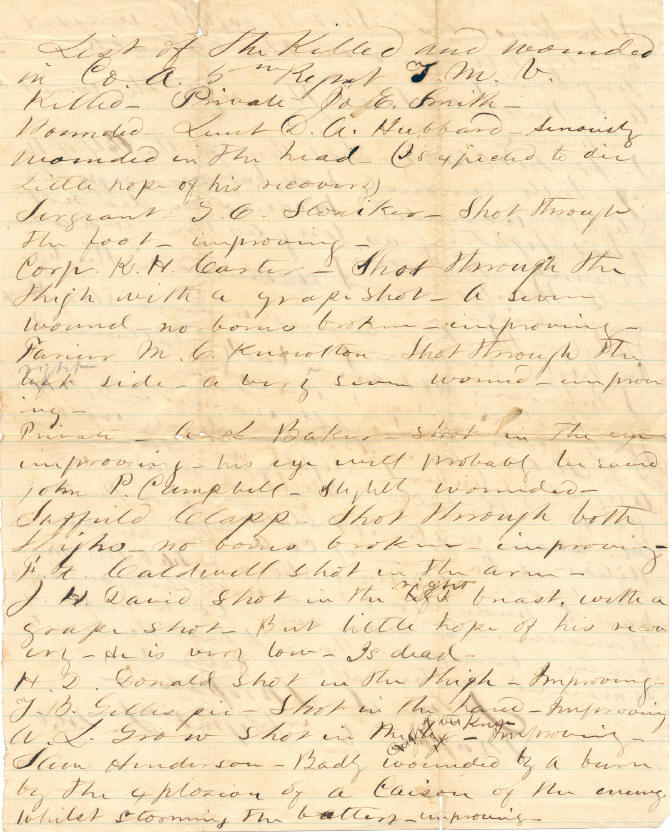 List of the Killed and wounded
in Co. A. 5th Regmt T. M. V.
Killed - Private Jo. E. Smith -
Wounded Lieut D. A. Hubbard - seriously
wounded in the head (Is expected to die
little hope of his recovery)
Sergeant - G. C. Sloniker - Shot through
the foot - improving -
Corp. R. H. Carter - Shot through the
thigh with a grape shot - A severe
wound - no bones broken - improving -
Farier M. C. Knowlton Shot through the
right
left side - a very severe wound - improv
ing -
Private - A. L. Baker - shot in the eye
improving - his eye will probably be saved
John P. Campbell - slightly wounded -
Suffield Clapp - Shot through both
thighs - no bones broken - improving -
F. A. Caldwell shot in the arm -
right
J. H. David shot in the left breast, with a
grape shot - But little hope of his recov
ery - He is very low - Is dead -
H. D. Donald shot in the thigh - Improving -
J. B. Gillespie - Shot in the hand - Improving
A. L. Grow shot in the - Improving -
Sam Henderson - Badly wounded by a burn
by the explosion of a Caison of the enemy,
whilst storming the battery - improving -